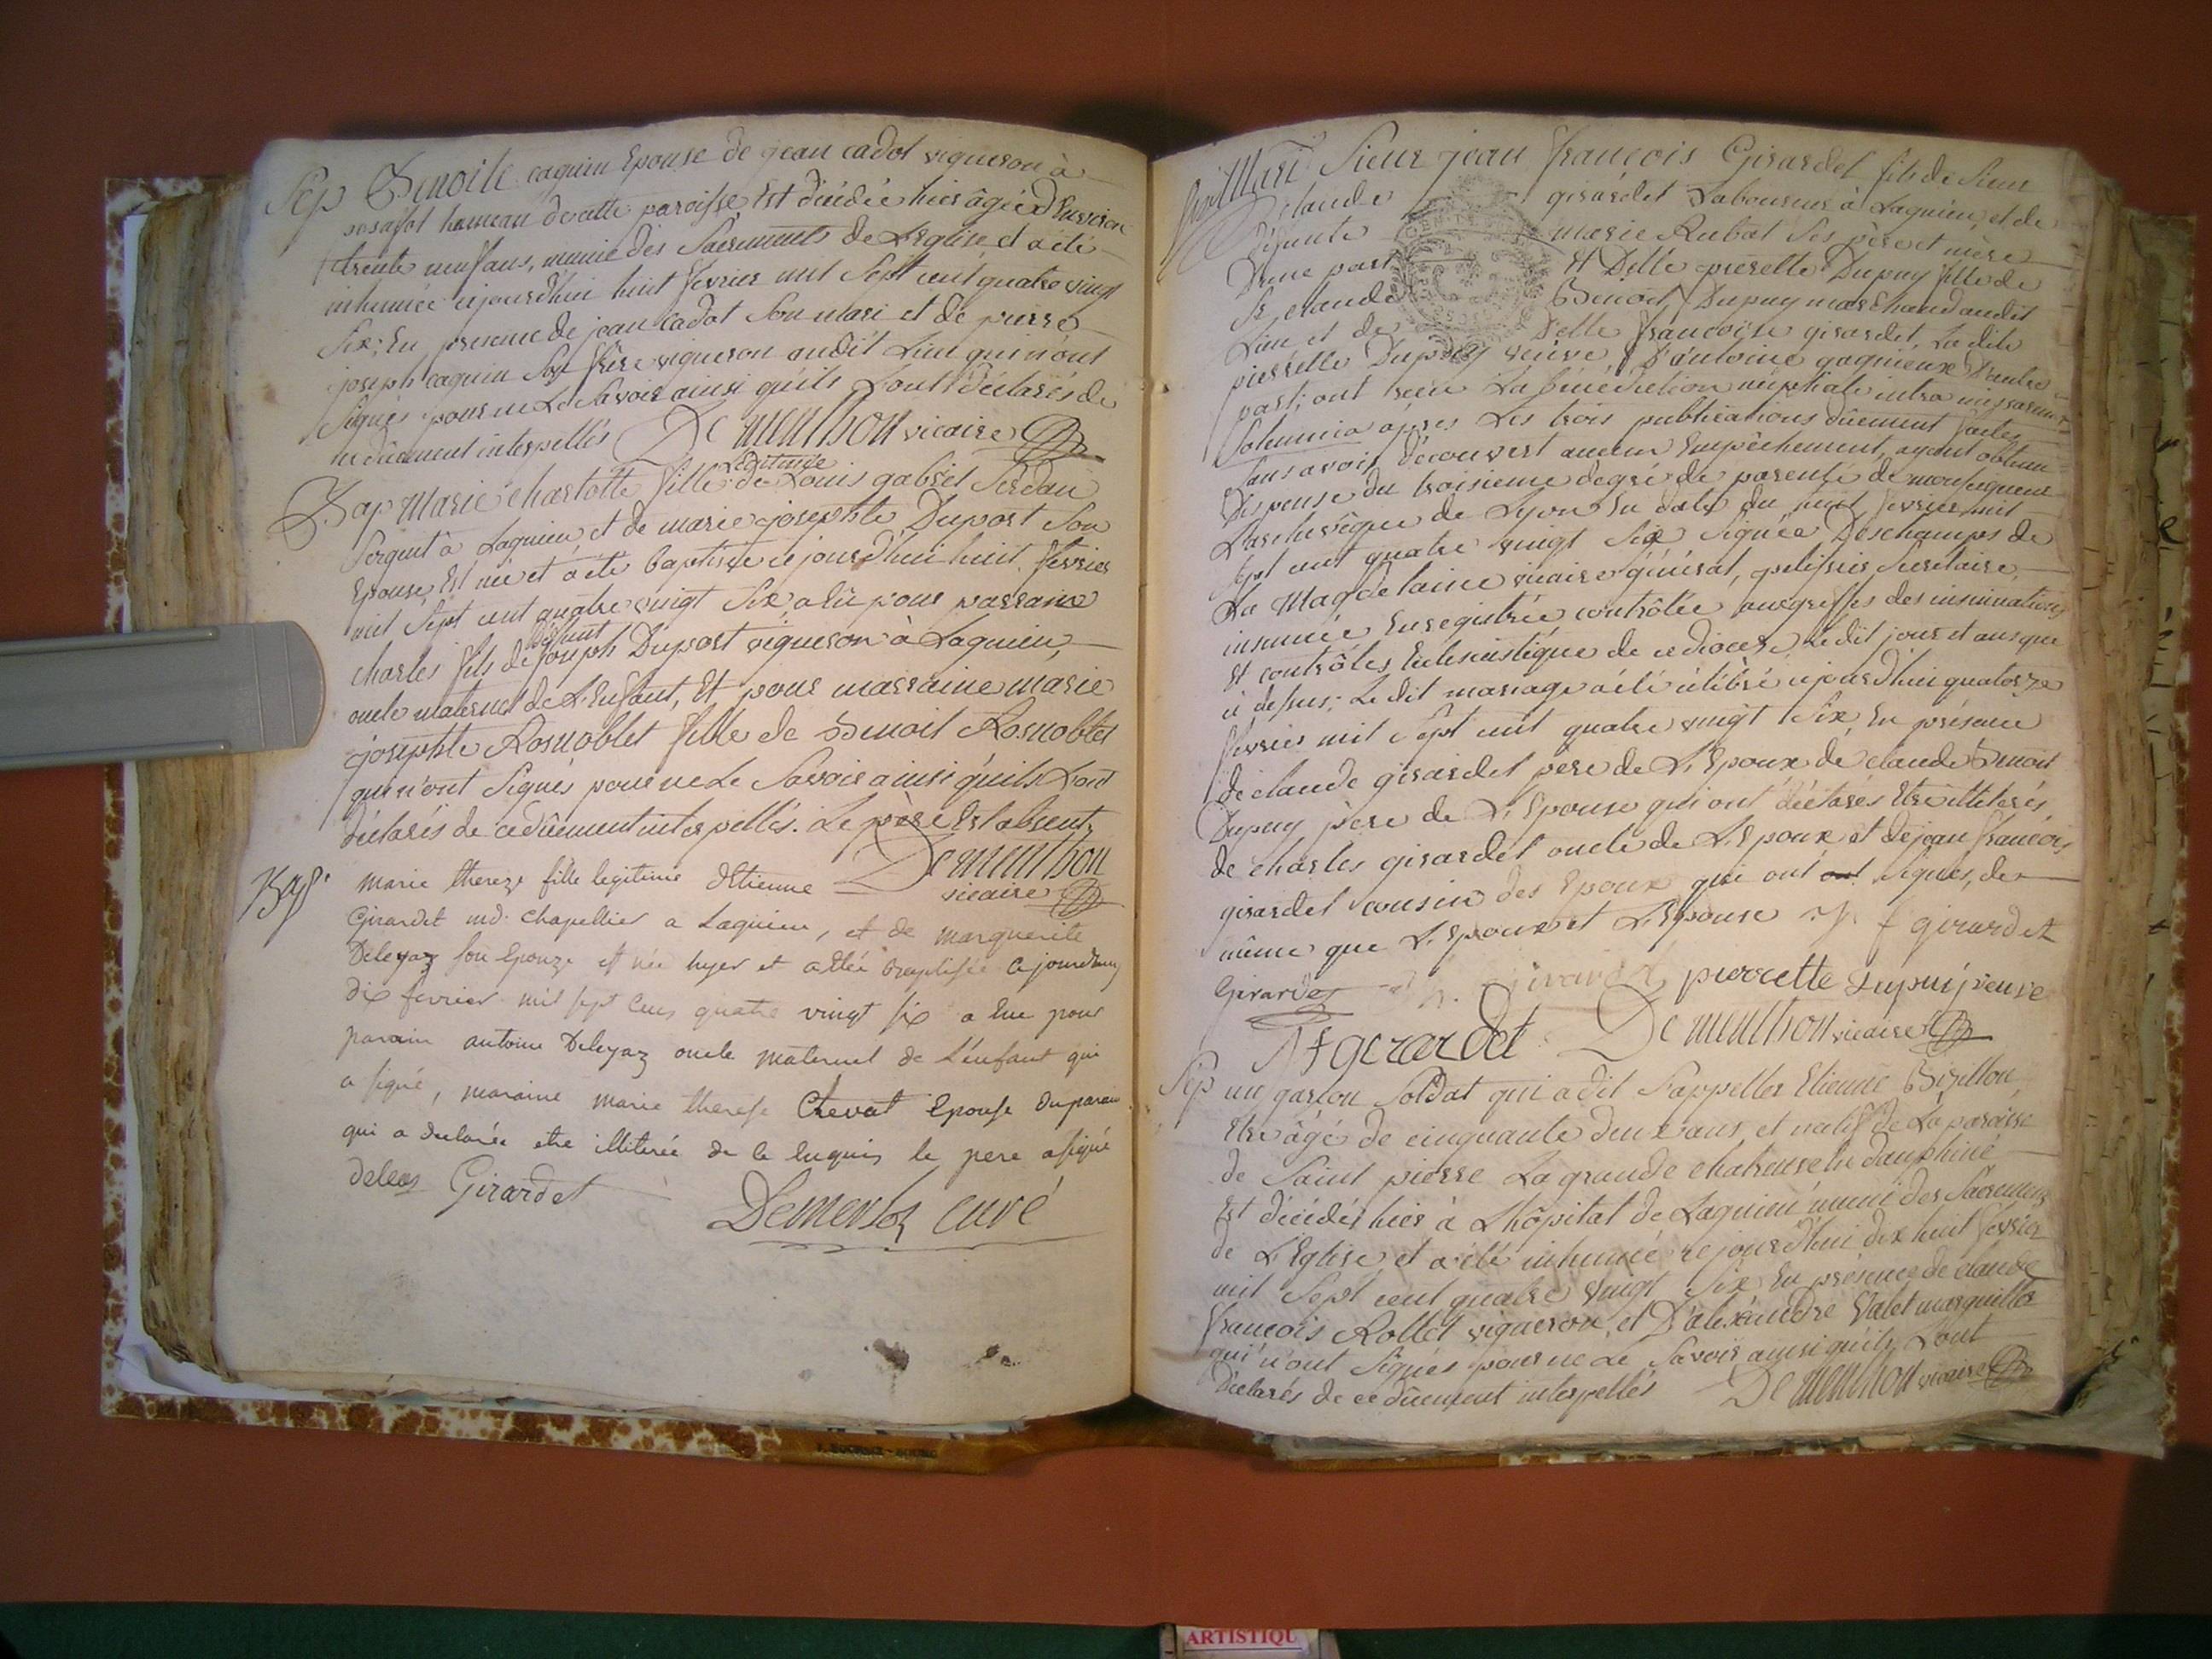 Sep Benoite caguin Epouse de jean cadot vigneron à
posafot hameau de cette paroisse Est décédée hier âgée d'Environ
trente neuf ans, munie des Sacrements de L'Eglise et a été
inhumée cejourd'hui huit fevrier mil Sept cent quatre vingt
Six; En presence de jean cadot Son mari et de pierre
joseph caguin Son frère vigneron audit Lieu qui n'ont
Signés pour ne Le Savoir ainsi qu'ils L'ont déclarés de
ce dûement interpellés De menthon vicaire
Bap Marie charlotte fille Légitime de Louis gabriel Serdan
Sergent à Lagnieu et de marie josephte Duport Son
Epouse, Est née et a été baptisée cejourd'hui huit fevrier
mil Sept cent quatre vingt Six, a Eû pour parrain
charles fils de défunt joseph Duport vigneron à Lagnieu,
oncle maternel de L'Enfant, Et pour marraine marie
josephte Rosnoblet fille de Benoit Rosnoblet
qui n'ont Signés pour ne Le Savoir ainsi qu'ils L'ont
déclarés de ce dûement interpellés. Le père Est absent.
De menthon
vicaire
Bap. marie thereze fille legitime d'Etienne
Girardet md. chapellier a Lagnieu, et de marguerite
Deleyaz son Epouze est née hyer et a étée baptisée cejourdhuy
dix fevrier mil sept cens quatre vingt six a Eue pour
parain antoine Deleyaz oncle maternel de L'enfant qui
a signé, maraine marie therese Chevat Epouse du parain
qui a declarée etre illiterée de ce enquis le pere a signé
deleas Girardet
Demerloz curé
Mari Sieur jean françois Girardet fils de Sieur
claude girardet Laboureur à Lagnieu, et de
défunte marie Rubat Ses père et mère
D'une part Et Delle pierrette Dupuy fille de
Sr claude Benoit Dupuy marchand audit
Lieu et de Delle françoise girardet, La dite
pierrette Dupuy veuve D'antoine gagnieux D'autre
part; ont recu La bénédiction nuptiale intra missarum
Solemnia après Les trois publications dûement faites
Sans avoir découvert aucun Empêchement, ayant obtenu
Dispense du troisieme degré de parenté de monseigneur
L'archevêque de Lyon En date du huit fevrier mil
Sept cent quatre vingt Six Signée Deschamps de
La Magdelaine vicaire général, Secrétaire,
insinuée Enregistrée contrôlée aux greffes des insinuations
Et contrôles Eclesiastique de ce diocèse Le dit jour et an que
ci dessus; Le dit mariage a été célébré cejourd'hui quatorze
fevrier mil Sept cent quatre vingt Six, En présence
de claude girardet père de L'Epoux de claude Benoit
Dupuy père de L'Epouse qui ont déclarés Etre illiterés,
de charles girardet oncle de L'Epoux et de jean françois
girardet cousin des Epoux qui ont ont Signés, de
même que L'Epoux et L'Epouse J f girardet
Girardet Girardet pierrette dupui veuve
J f gerardet De menthon vicaire
Sep un garçon Soldat qui a dit S'appeller Etienne Bizillon,
Etre âgé de cinquante deux ans, et natif de La paroisse
de Saint pierre La grande chatreuse En dauphiné
Est décédé hier à L'hôpital de Lagnieu muni des Sacremens
de L'Eglise et a été inhumé cejourd'hui dix huit fevrier
mil Sept cent quatre vingt Six En présence de claude
françois Rollet vigneron, et D'alexandre Valet marguillier
qui n'ont Signés pour ne Le Savoir ainsi qu'ils L'ont
Déclarés de ce dûement interpellés De menthon vicaire
ARTISTIQU